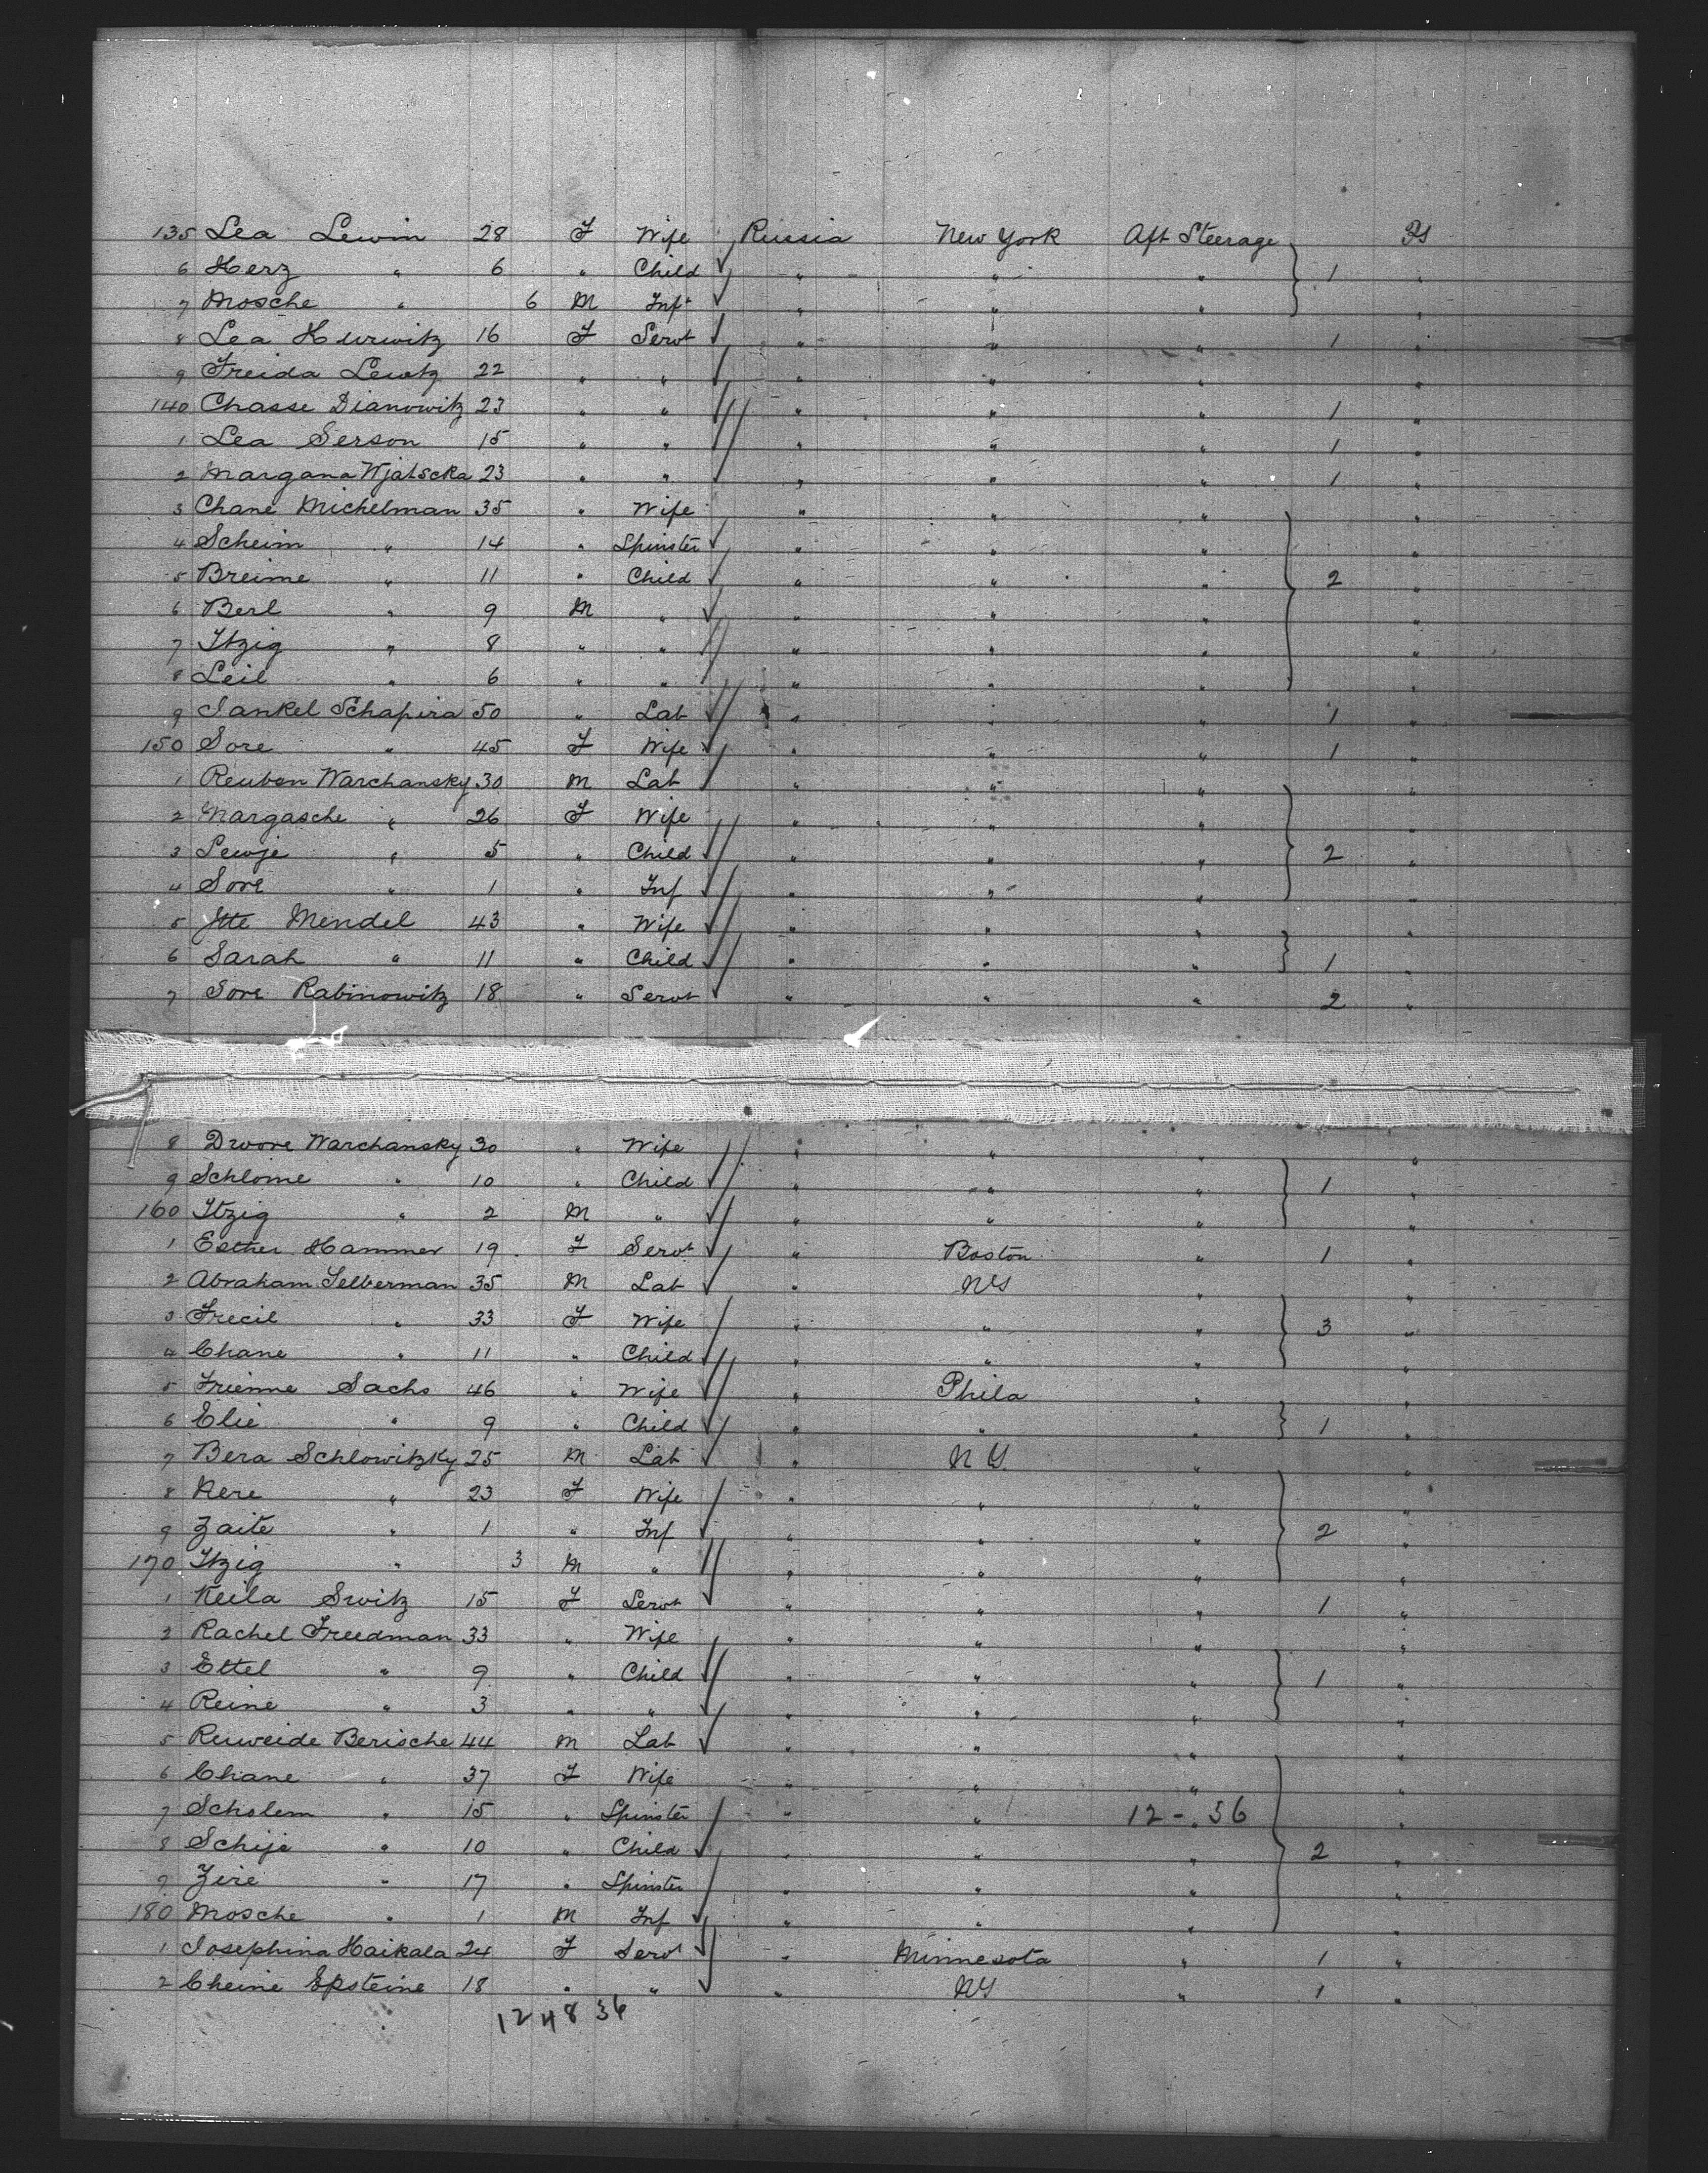 135 Lea Lewin 28 F Wife Russia New York Aft Steerage PS
6 Herz " 6 " Child " " " 1 "
7 Mosche " 6 M Inft " " " "
8 Lea Hurwitz 16 F Servt " " " 1 "
9 Freida Lewtz 22 " " " " " "
140 Chasse Dianowitz 23 " " " " " 1 "
1 Lea Serson 15 " " " " " 1 "
2 Margana Wjatscka 23 " " " " " 1 "
3 Chane Michelman 35 " Wife " " " "
4 Scheim " 14 " Spinster " " " "
5 Breime " 11 " Child " " " 2 "
6 Berl " 9 M " " " " "
7 Itzig " 8 " " " " " "
8 Leil " 6 " " " " " "
9 Jankel Schapira 50 " Lab " " " 1 "
150 Sore " 45 F Wife " " " 1 "
1 Reuben Warchansky 30 M Lab " " " "
2 Margasche " 26 F Wife " " " "
3 Lewje " 5 " Child " " " 2 "
4 Sore " 1 " Inf " " " "
5 Itte Mendel 43 " Wife " " " "
6 Sarah " 11 " Child " " " 1 "
7 Sore Rabinowitz 18 " Servt " " " 2 "
8 Dwore Warchansky 30 " Wife " " " "
9 Schlome " 10 " Child " " " 1 "
160 Itzig " 2 M " " " " "
1 Esther Hammer 19 F Servt " Boston " 1 "
2 Abraham Selberman 35 M Lab " NY " "
3 Frecil " 33 F Wife " " " 3 "
4 Chane " 11 " Child " " " "
5 Frienne Sachs 46 " Wife " Phila " "
6 Elie " 9 " Child " " " 1 "
7 Bera Schlowitzky 25 M Lab " NY " "
8 Rere " 23 F Wife " " " "
9 Zaite " 1 " Inf " " " 2 "
170 Itzig " 3 M " " " " "
1 Keila Switz 15 F Servt " " " 1 "
2 Rachel Freedman 33 " Wife " " " "
3 Ettel " 9 " Child " " " 1 "
4 Reine " 3 " " " " " "
5 Ruweide Berische 44 M Lab " " " "
6 Chane " 37 F Wife " " " "
7 Scholem " 15 " Spinster " " 12 - 36 "
8 Schije " 10 " Child " " " 2 "
9 Zire " 17 " Spinster " " " "
180 Mosche " 1 M Inf " " " "
1 Josephina Haikala 24 F Servt " Minnesota " 1 "
2 Cheine Epsteine 18 " " " NY " 1 "
12 4 8 36